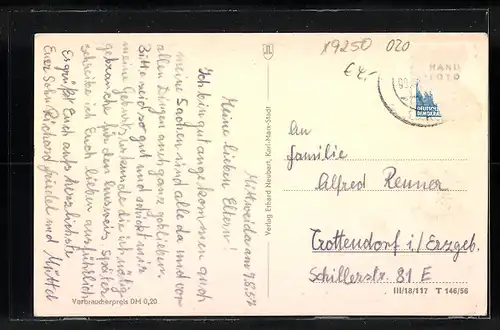 Mittweida am 7.8.57
Meine lieben Eltern!
Ich bin gut angekommen auch
meine Sachen sind alle da und vor
allen Dingen auch ganz geblieben.
Bitte seid so gut und schickt mir
meine Geburtsurkunde die ich nötig
gebrauche für den Ausweis. Später
schreibe ich Euch lieben ausführlich
Es grüßt Euch aufs herzlichste
Euer Sohn Richard
und
Verbraucherpreis DM 0,20
Verlag Erhard Neubert, Karl-Marx-Stadt
19250 020
€ 4,-
HAND
FOTO
An
Familie
Alfred Renner
Crottendorf i/Erzgeb.
Schillerstr. 81 E
III/18/117 T 146/56